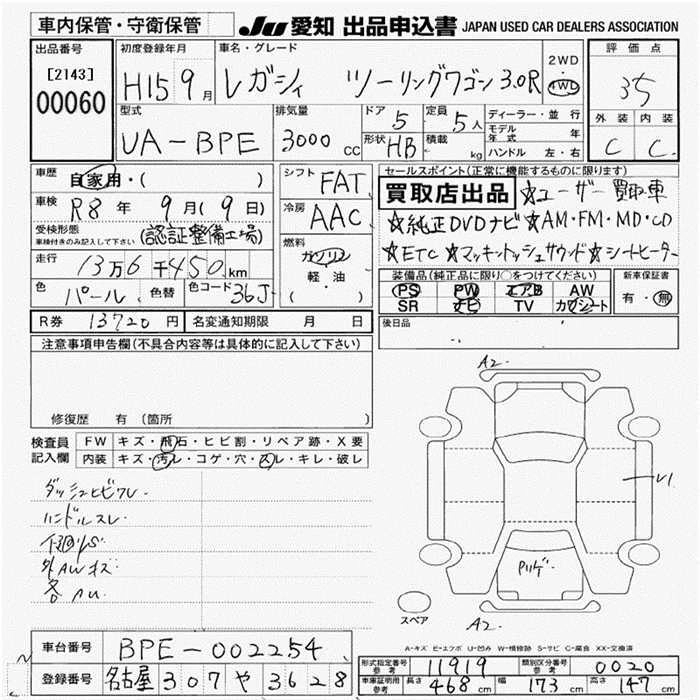 車内保管・守衛保管 JU 愛知 出品申込書 JAPAN USED CAR DEALERS ASSOCIATION
出品番号 初度登録年月 車名・グレード 2WD・4WD 評価点
[2143] 00060 H15 9月 レガシィ ツーリングワゴン 3.0R 35
型式 排気量 ドア 5 定員 5人 ディーラー・並行 外装 内装
UA-BPE 3000cc 形状 HB 積載 kg モデル年式 年 C C
ハンドル 左・右
車歴 自家用・( ) シフト FAT セールスポイント(正常に機能するものに限ります)
車検 R8年 9月(9日) 冷房 AAC 買取店出品 ☆ユーザー買取車
受検形態 車検付きのみ記入して下さい (認証整備工場) ☆純正DVDナビ☆AM・FM・MD・CD
走行 13万6千450km 燃料 ガソリン ☆ETC☆マッキントッシュサウンド☆シートヒーター
軽・油
( )
色 パール 色替 色コード 36J
装備品(純正品に限り○をつけてください) 新車保証書
PS PW エアB AW 有・無
SR ナビ TV カワシート
R券 13720円 名変通知期限 月 日 後日品
注意事項申告欄(不具合内容等は具体的に記入して下さい)
修復歴 有 (箇所
検査員記入欄 FW キズ・飛石・ヒビ割・リペア跡・X要
内装 キズ・汚レ・コゲ・穴・スレ・キレ・破レ
A2.
ダッシュヒビワレ.
ハンドルスレ
下廻りS
外AWキズ
各AU.
スペア
A2.
A-キズ E-エクボ U-凹み W-補修跡 S-サビ C-腐食 XX-交換済
車台番号 BPE-002254
登録番号 名古屋 307 や 3628
形式指定番号 参考 11919 類別区分番号 参考 0020
車庫証明用 参考 長さ 468cm 幅 173cm 高さ 147cm